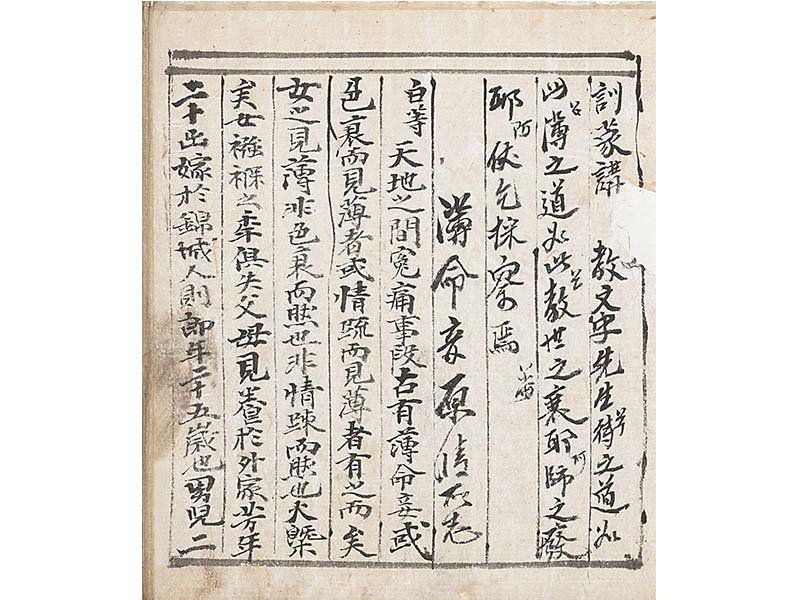 訓蒙講 教文字先生待之道如
此薄之道如此教世之衰耶師之廢
耶伏乞採察焉
薄命妾原情所志
白等天地之間冤痛事段古有薄命妾或
色衰而見薄者或情疏而見薄者有之而矣
女之見薄非色衰而然也非情疎而然也大槩
矣女襁褓之率俱失父母見養於外家芳年
二十出嫁於錦城人則郎年二十五歲也男兒二